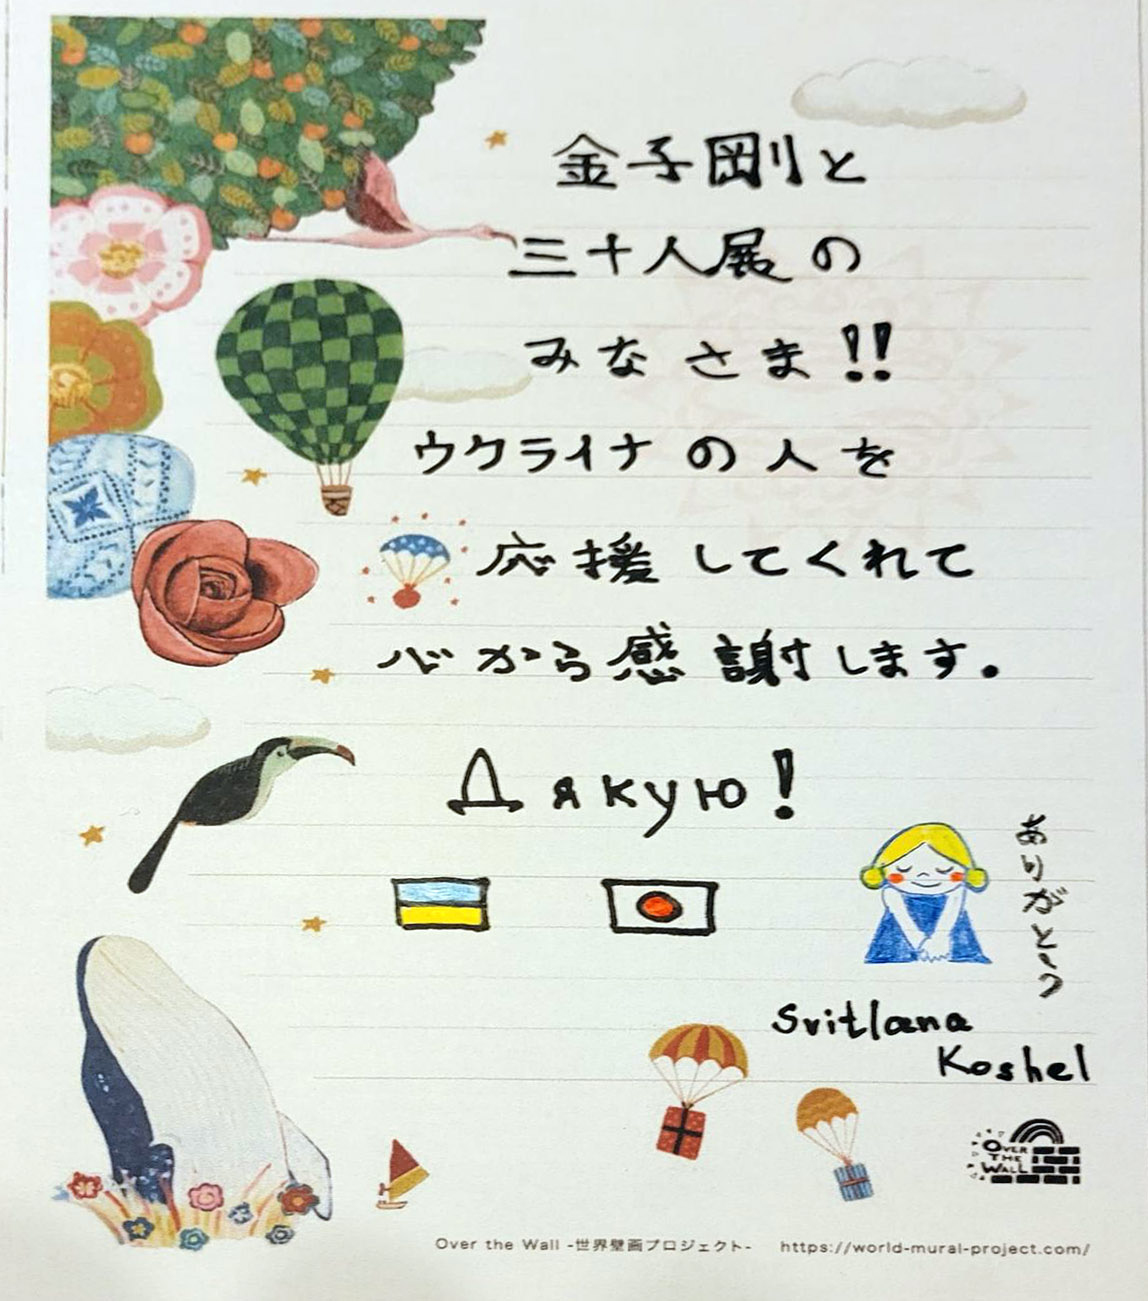 金子剛と
三十人展の
みなさま!!
ウクライナの人を
応援してくれて
心から感謝します。
Дякую!
ありがとう
Svitlana
Koshel
OVER
THE
WALL
Over the Wall -世界壁画プロジェクト- https://world-mural-project.com/